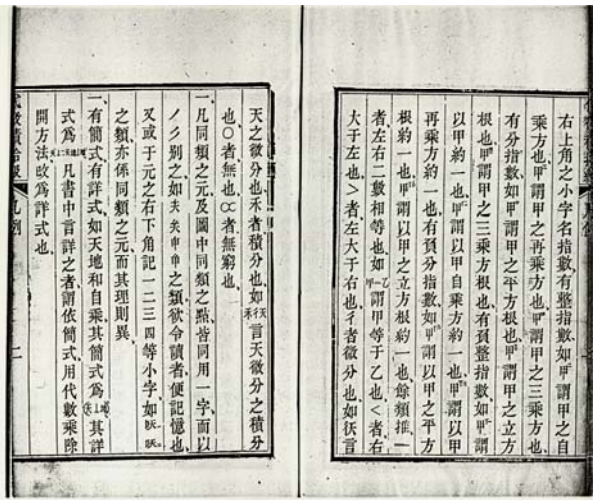 右上角之小字名指數有整指數如甲謂甲之自
乘方也甲謂甲之再乘方也甲謂甲之三乘方也
有分指數如甲謂甲之平方根也甲謂甲之立方
根也甲謂甲之三乘方根也有負整指數如甲謂
以甲約一也甲謂以甲自乘方約一也甲謂以甲
再乘方約一也有負分指數如甲謂以甲之平方
根約一也甲謂以甲之立方根約一也餘類推一
者左右二數相等也如乙一甲謂甲等于乙也<者右
大于左也>者左大于右也彳者微分也如彳天言
天之微分也禾者積分也如禾彳天言天微分之積分
也〇者無也∝者無窮也
一凡同類之元及圖中同類之點皆同用一字而以
丿乀別之如天天申申之類欲令讀者便記憶也
又或于元之右下角記一二三四等小字如
之類亦係同類之元而其理則異
一有簡式有詳式如天地和自乘其簡式為其詳
式為凡書中言詳之者謂依簡式用代數乘除
開方法改為詳式也
凡例
二